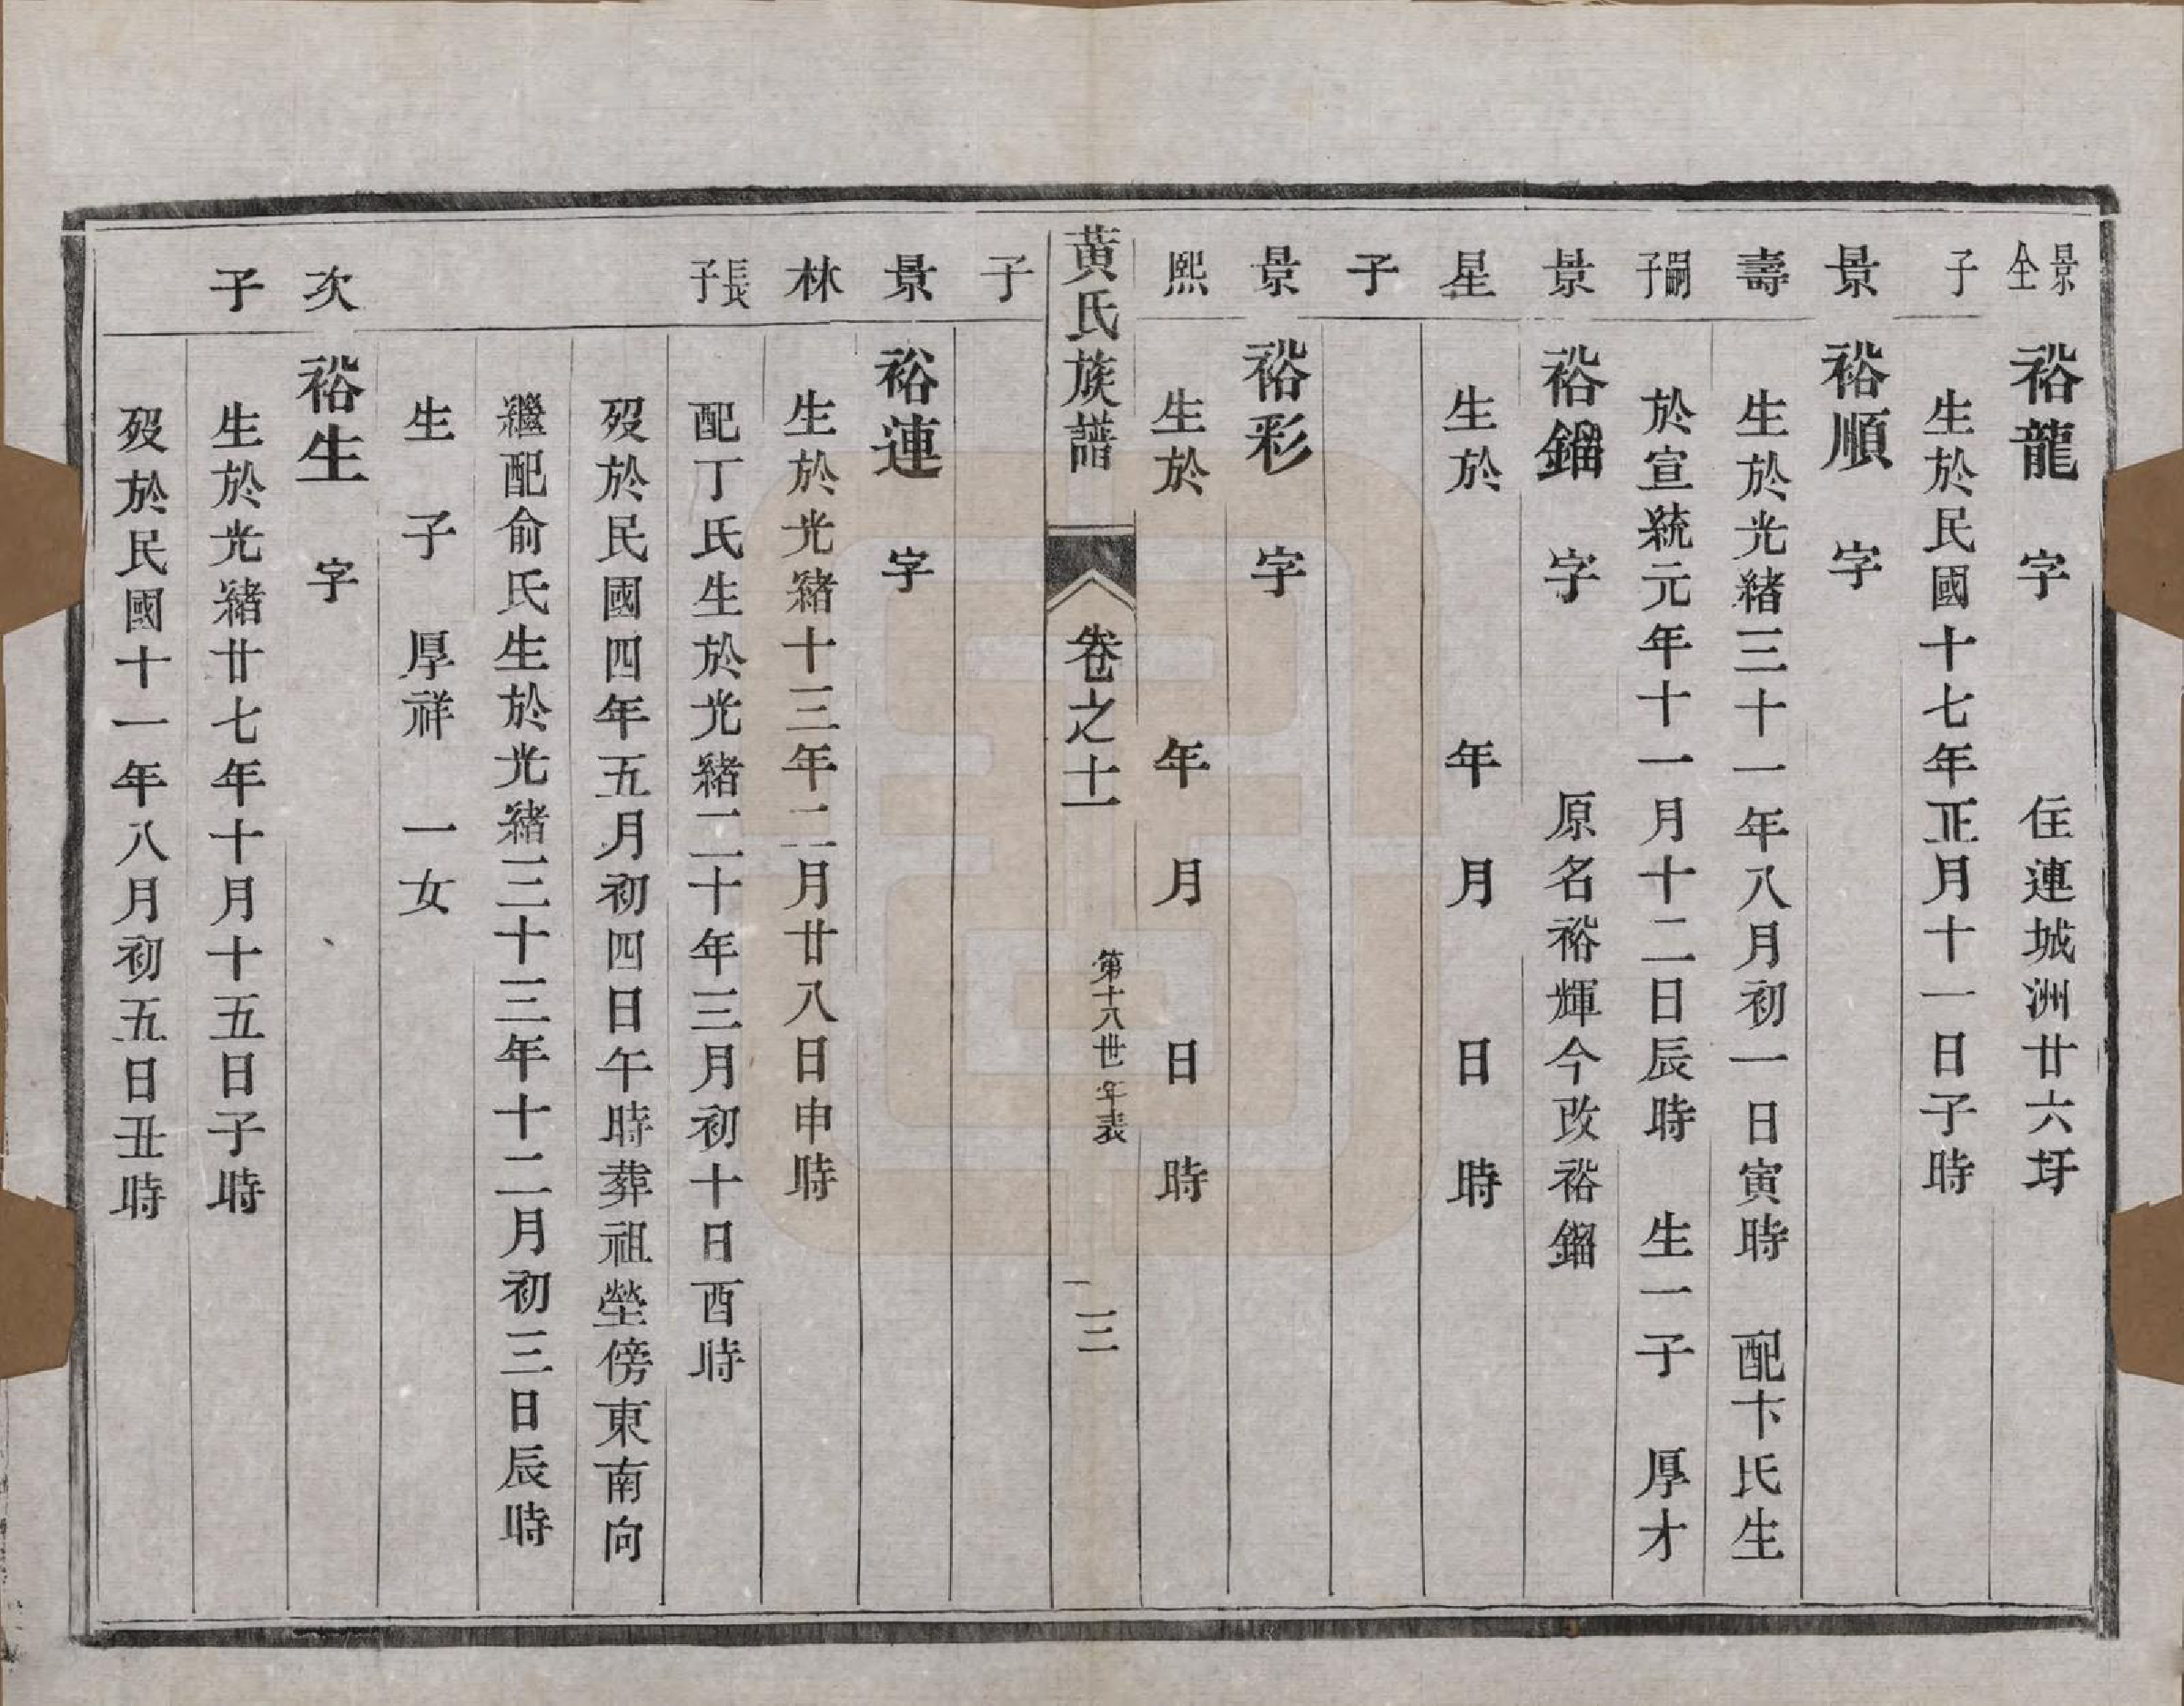 景仝 裕龍 字 住連城洲廿六圩
子 生於民國十七年正月十一日子時
景 裕順 字
壽 生於光緒三十一年八月初一日寅時 配卞氏生
嗣子 於宣統元年十一月十二日辰時 生一子 厚才
景 裕鎦 字 原名裕輝今改裕鎦
星 生於 年 月 日 時
子
景 裕彩 字
熙 生於 年 月 日 時
黃氏族譜 卷之十一 第十八世年表 三
子
景 裕連 字
林 生於光緒十三年二月廿八日申時
長子 配丁氏生於光緒二十年三月初十日酉時
歿於民國四年五月初四日午時葬祖塋傍東南向
繼配俞氏生於光緒三十三年十二月初三日辰時
生 子 厚祥 一女
次 裕生 字
子 生於光緒廿七年十月十五日子時
歿於民國十一年八月初五日丑時